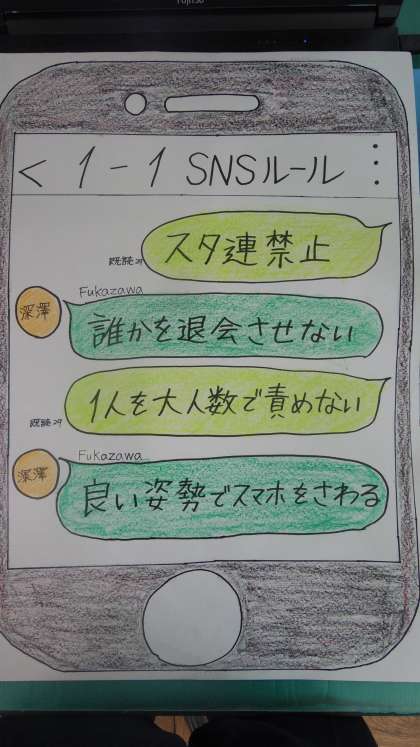 FUJITSU
< 1-1 SNSルール
スタ連禁止
既読29
Fukazawa
深澤
誰かを退会させない
1人を大人数で責めない
既読29
Fukazawa
深澤
良い姿勢でスマホをさわる